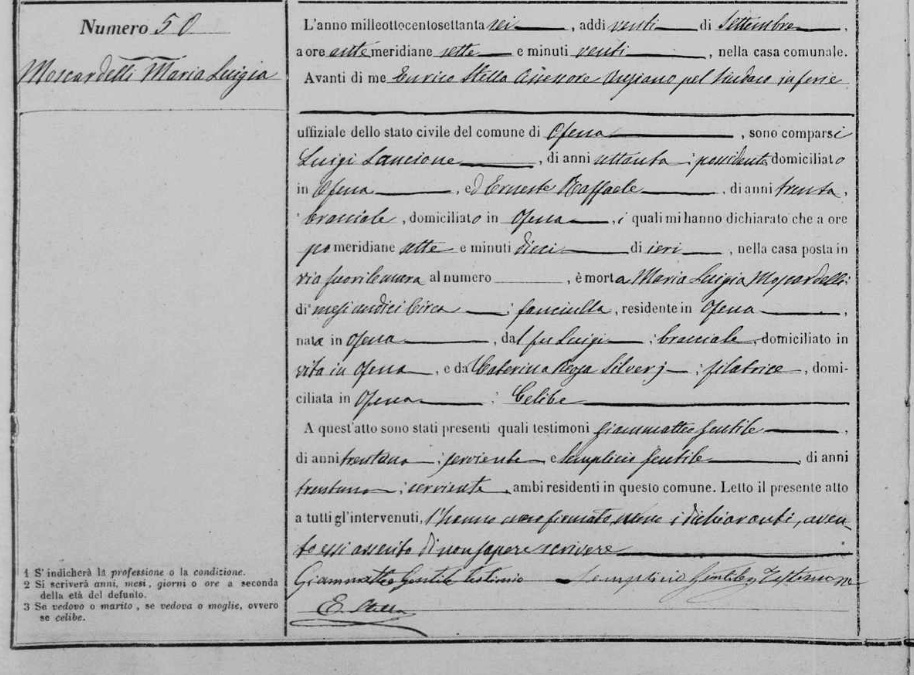 Numero 50
Moscardelli Maria Luigia
L'anno milleottocentosettanta sei, addì venti di Settembre,
a ore anti meridiane sette e minuti venti, nella casa comunale.
Avanti di me Enrico Stella Assessore Anziano pel Sindaco
uffiziale dello stato civile del comune di Ofena, sono comparsi
Luigi Lancione, di anni ottanta; possidente, domiciliato
in Ofena, ed Ernesto Raffaele, di anni trenta,
bracciale, domiciliato in Ofena, i quali mi hanno dichiarato che a ore
po meridiane sette e minuti dieci di ieri, nella casa posta in
via fuori le mura al numero, è morta Maria Luigia Moscardelli
di mesi undici circa; fanciulla, residente in Ofena,
nata in Ofena, dal fu Luigi; bracciale, domiciliato in
vita in Ofena, e da Caterina Rosa Silverj; filatrice, domi-
ciliata in Ofena; Celibe
A quest'atto sono stati presenti quali testimoni Giammatteo Gentile,
di anni trentuno; serviente e Semplicio Gentile, di anni
trentuno; serviente, ambi residenti in questo comune. Letto il presente atto
a tutti gl'intervenuti, l'hanno i dichiaranti, aven
to essi asserito di non sapere scrivere
Giammatteo Gentile testimonio Semplicio Gentile Testimone
E. Stella
1 S'indicherà la professione o la condizione.
2 Si scriverà anni, mesi, giorni o ore a seconda
della età del defunto.
3 Se vedovo o marito, se vedova o moglie, ovvero
se celibe.